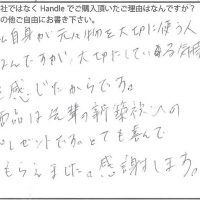 社ではなく Handle でご購入頂いたご理由はなんですか?
の他ご自由にお書き下さい。
自身が元々物を大切に使う人
なんですが、大切にしている
感じたからです。
商品は先輩の新築祝いの
プレゼントです。とても喜んで
もらえました。感謝します。